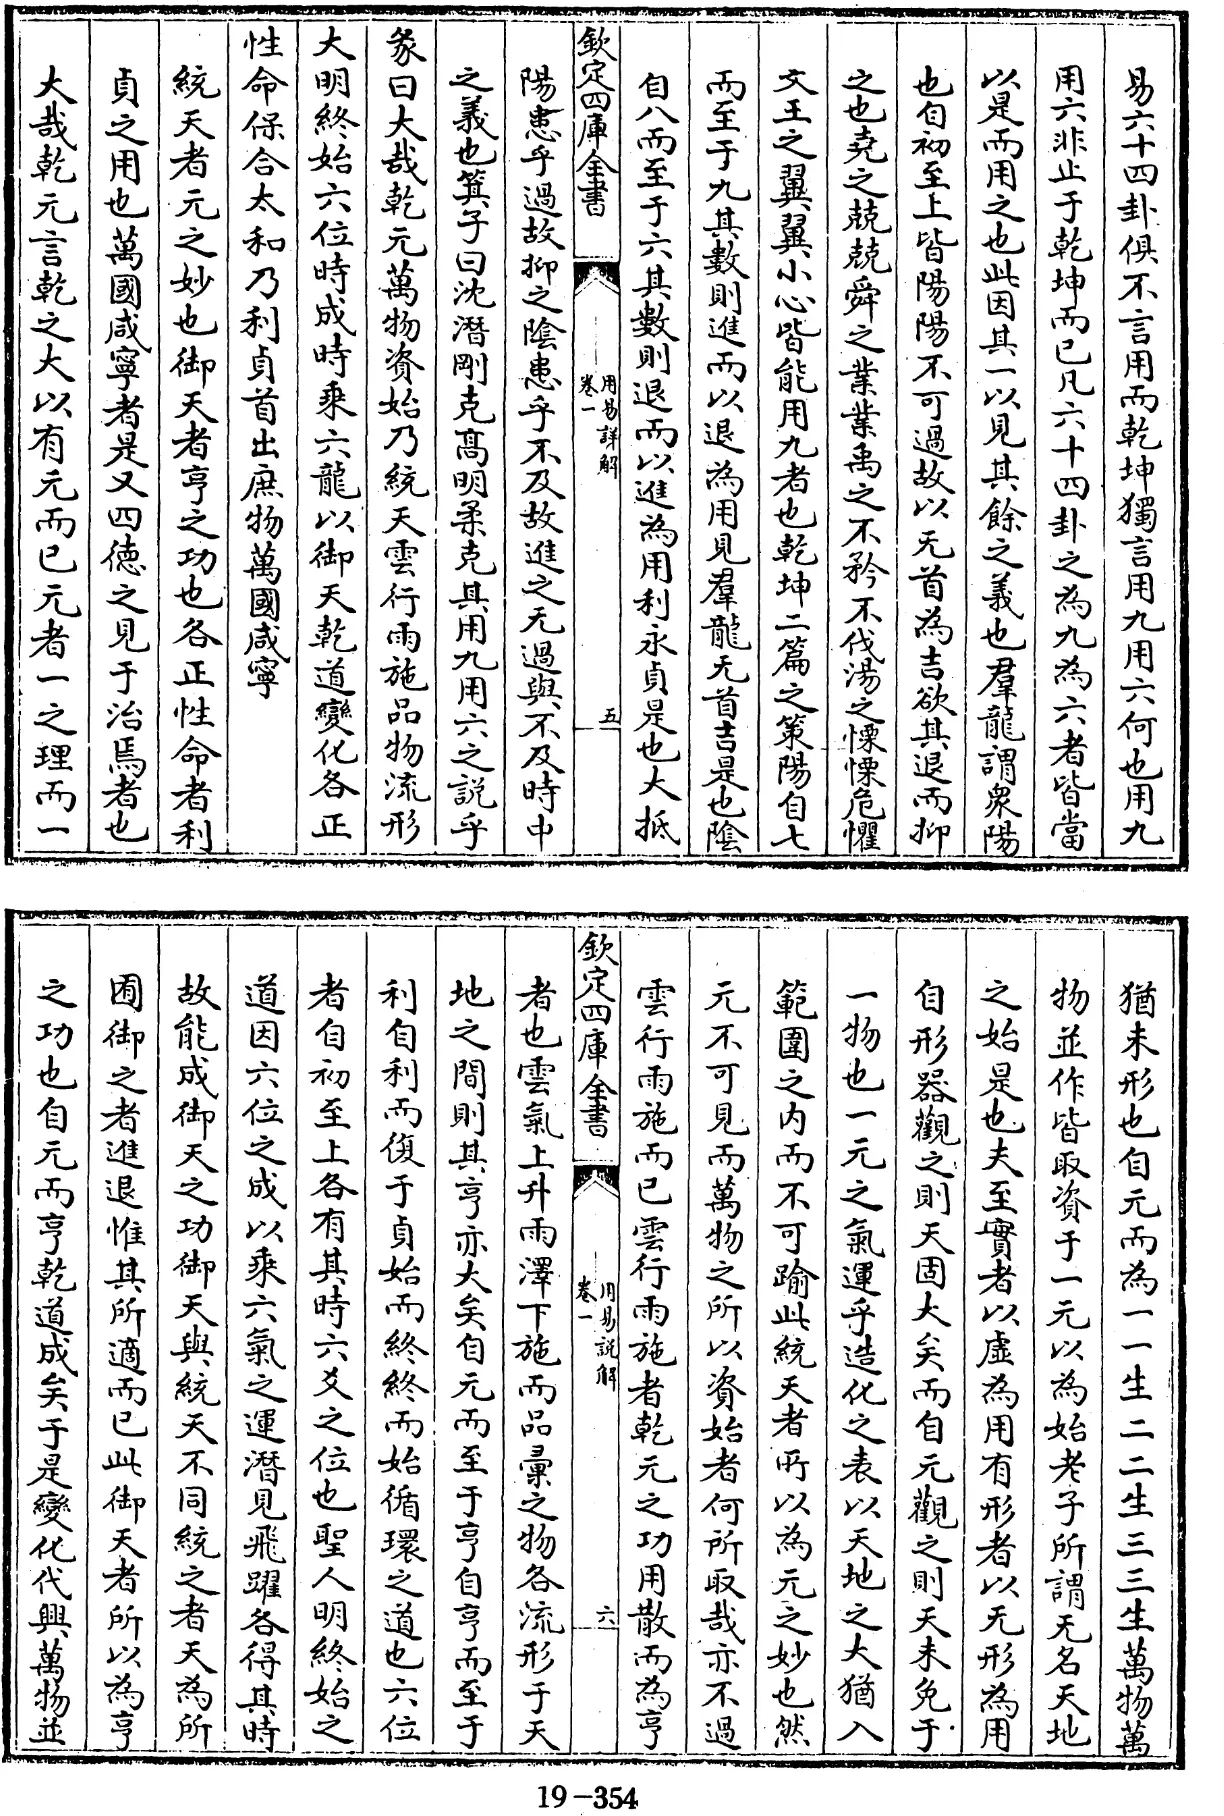 易六十四卦俱不言用而乾坤獨言用九用六何也用九
用六非止于乾坤而已凡六十四卦之為九為六者皆當
以是而用之也此因其一以見其餘之義也羣龍謂衆陽
也自初至上皆陽陽不可過故以无首為吉欲其退而抑
之也堯之兢兢舜之業業禹之不矜不伐湯之慄慄危懼
文王之翼翼小心皆能用九者也乾坤二篇之策陽自七
而至于九其數則進而以退為用見羣龍无首吉是也陰
自八而至于六其數則退而以進為用利永貞是也大抵
欽定四庫全書
用易詳解
卷一
五
陽患乎過故抑之陰患乎不及故進之无過與不及時中
之義也箕子曰沈潛剛克髙明柔克其用九用六之説乎
彖曰大哉乾元萬物資始乃統天雲行雨施品物流形
大明終始六位時成時乘六龍以御天乾道變化各正
性命保合太和乃利貞首出庶物萬國咸寧
統天者元之妙也御天者亨之功也各正性命者利
貞之用也萬國咸寧者是又四德之見于治焉者也
大哉乾元言乾之大以有元而已元者一之理而一
猶未形也自元而為一一生二二生三三生萬物萬
物並作皆取資于一元以為始老子所謂无名天地
之始是也夫至實者以虛為用有形者以无形為用
自形器觀之則天固大矣而自元觀之則天未免于
一物也一元之氣運乎造化之表以天地之大猶入
範圍之内而不可踰此統天者所以為元之妙也然
元不可見而萬物之所以資始者何所取哉亦不過
雲行雨施而已雲行雨施者乾元之功用散而為亨
欽定四庫全書
用易説解
卷一
六
者也雲氣上升雨澤下施而品彙之物各流形于天
地之間則其亨亦大矣自元而至于亨自亨而至于
利自利而復于貞始而終終而始循環之道也六位
者自初至上各有其時六爻之位也聖人明終始之
道因六位之成以乘六氣之運潛見飛躍各得其時
故能成御天之功御天與統天不同統之者天為所
囿御之者進退惟其所適而已此御天者所以為亨
之功也自元而亨乾道成矣于是變化代興萬物並
19-354